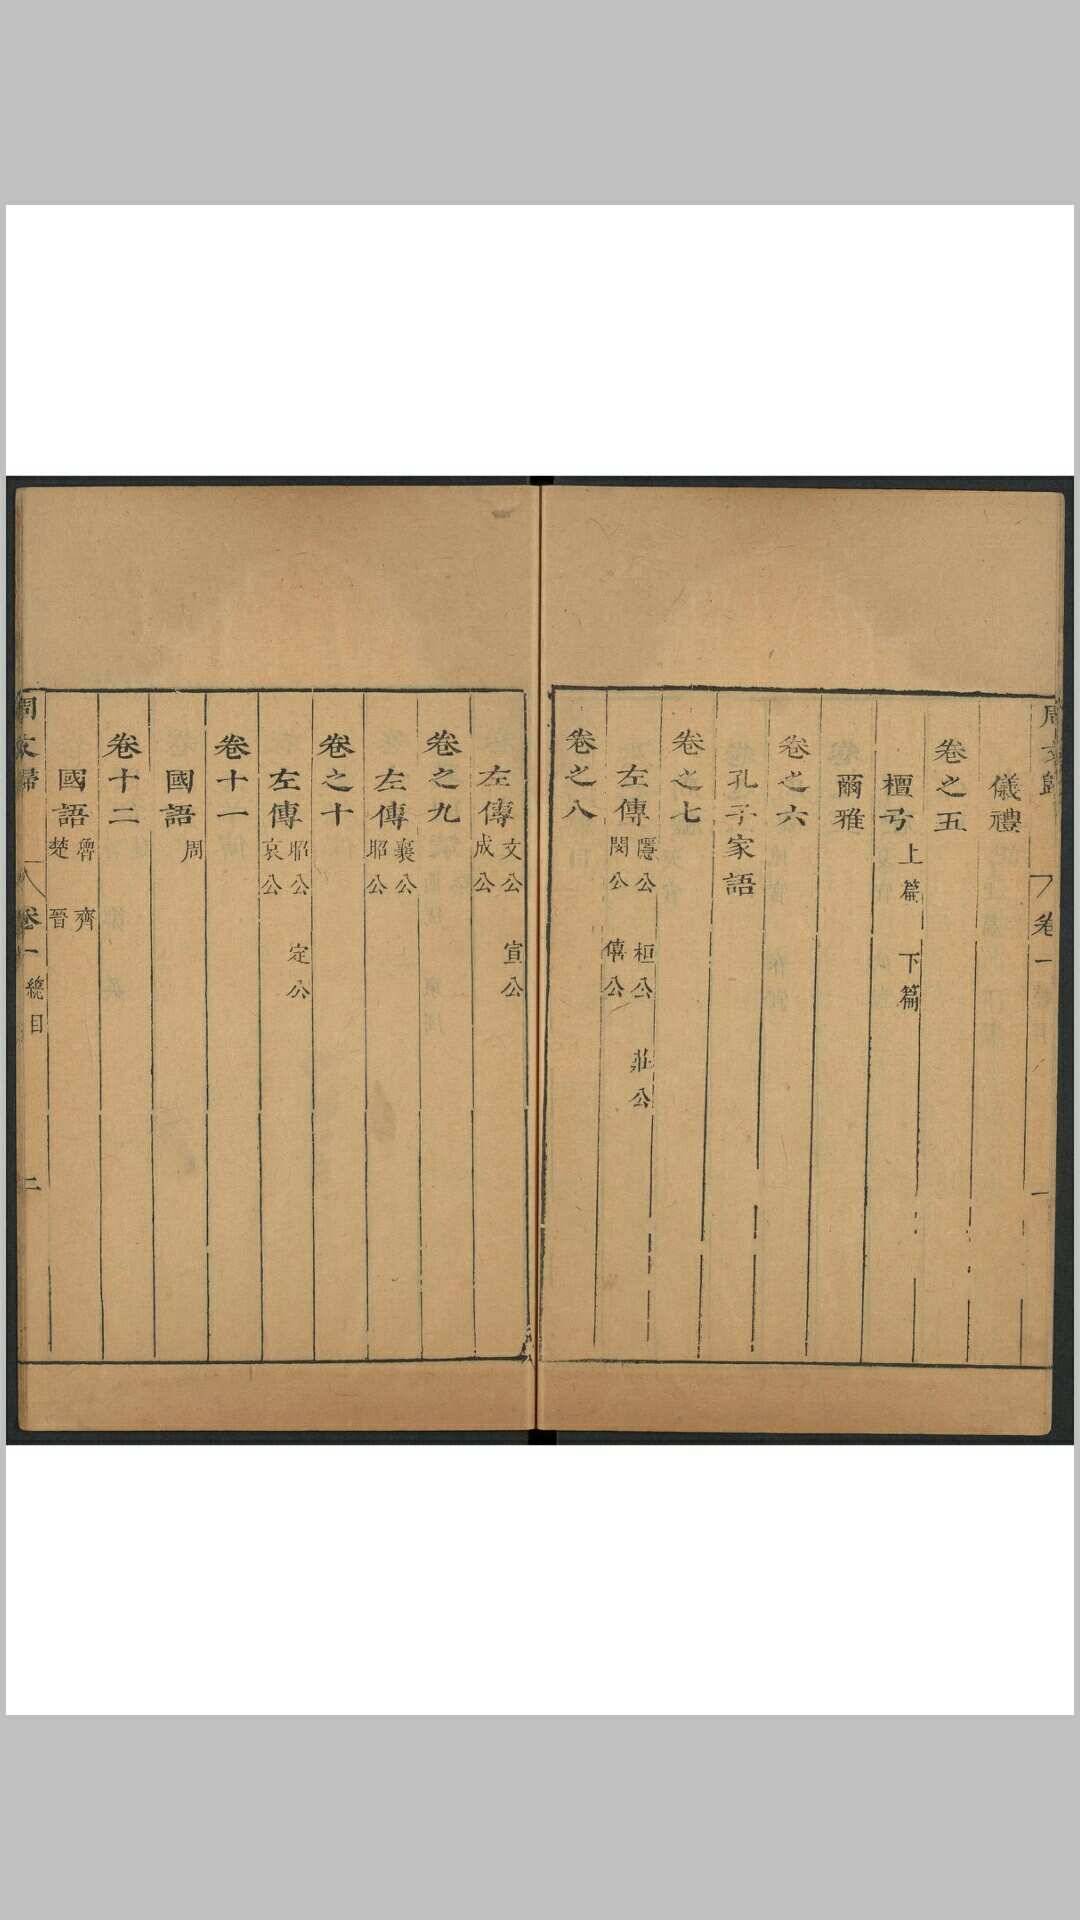 周文歸
卷一
一
儀禮
卷之五
檀弓 上篇 下篇
爾雅
卷之六
孔子家語
卷之七
左傳 隱公 桓公 莊公
閔公 僖公
卷之八
左傳 文公 宣公
成公
卷之九
左傳 襄公
昭公
卷之十
左傳 昭公 定公
哀公
卷十一
國語 周
卷十二
國語 魯 齊
楚 晉
周文歸 卷一 總目 二